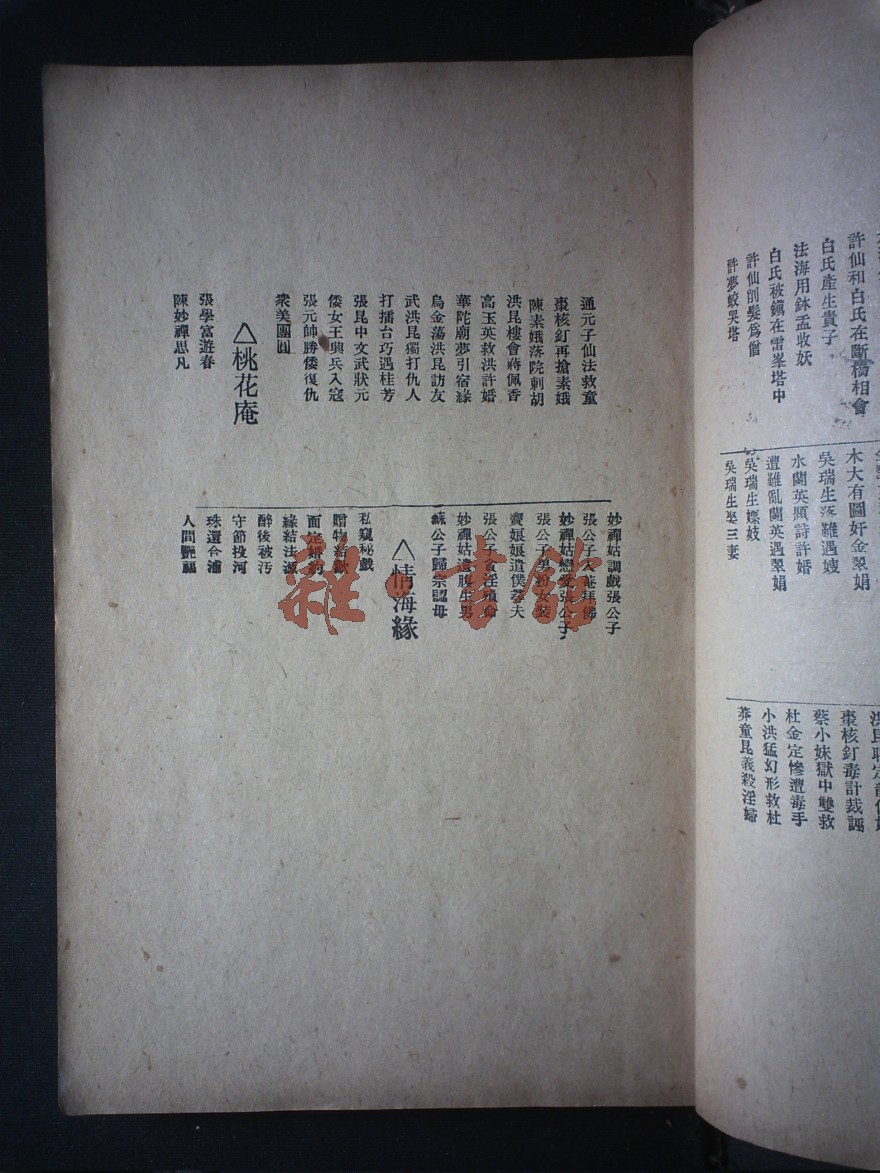 許仙和白氏在斷橋相會
白氏產生貴子
法海用鉢盂收妖
白氏被鎮在雷峯塔中
許仙削髮為僧
許夢蛟哭塔
木大有圖奸金翠娟
吳瑞生落難遇嫂
水蘭英題詩許婚
遭難亂蘭英遇翠娟
吳瑞生嫖妓
吳瑞生娶三妻
棗核釘毒計裁誣
蔡小妹獄中雙救
杜金定慘遭毒手
小洪猛幻形救杜
莽童昆義殺淫婦
通元子仙法救童
棗核釘再搶素娥
陳素娥落院刺胡
洪昆樓會蔣佩香
高玉英救洪許婚
華陀廟夢引宿緣
烏金蕩洪昆訪友
武洪昆獨打仇人
打擂台巧遇桂芳
張昆中文武狀元
倭女王興兵入寇
張元帥勝倭復仇
衆美團圓
△桃花庵
張學富遊春
陳妙禪思凡
妙禪姑調戲張公子
張公子入菴拜佛
妙禪姑戀愛張公子
張公子男扮女裝
竇娘娘遣僕尋夫
張公子貪淫殞命
妙禪姑遺腹生男
蘇公子歸宗認母
△情海緣
私窺秘戲
贈物結歡
面定婚約
緣結法源
醉後被汚
守節投河
珠還合浦
人間艷福
雜·書館